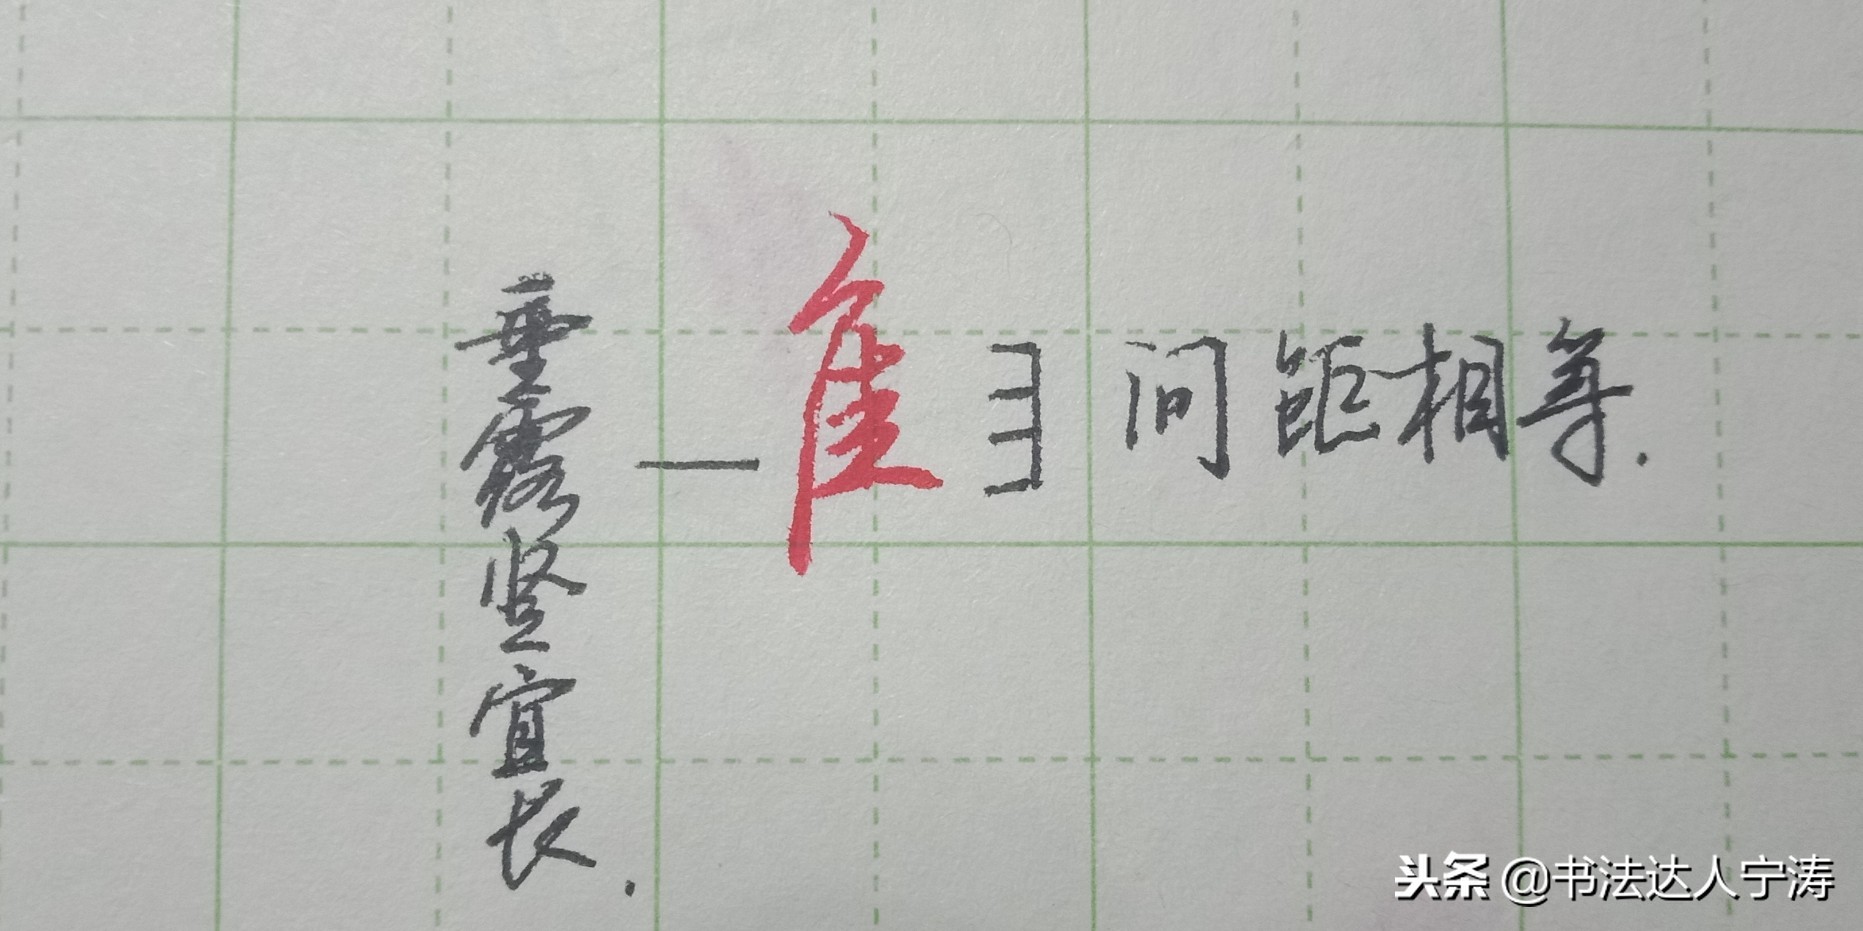 垂露竖宜长.
隹
间距相等.
头条 @书法达人宁涛